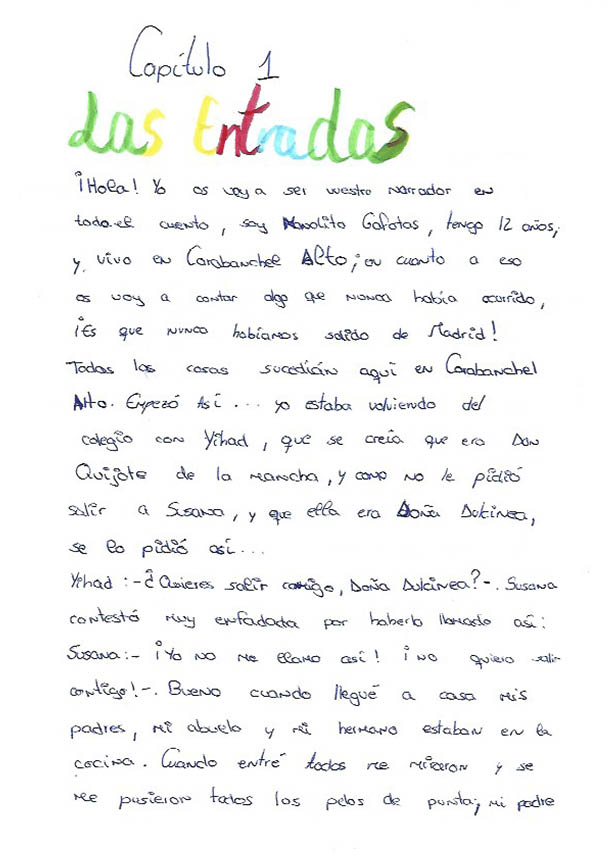 Capítulo 1
Las Entradas
¡Hola! Yo os voy a ser vuestro narrador en
todo el cuento, soy Manolito Gafotas, tengo 12 años,
y vivo en Carabanchel Alto; en cuanto a eso
os voy a contar algo que nunca había ocurrido,
¡Es que nunca habíamos salido de Madrid!
Todas las cosas sucedían aquí en Carabanchel
Alto. Empezó así... yo estaba volviendo del
colegio con Yihad, que se creía que era Don
Quijote de la mancha, y como no le pidió
salir a Susana, y que ella era Doña Dulcinea,
se lo pidió así...
Yihad:-¿Quieres salir conmigo, Doña Dulcinea?-. Susana
contestó muy enfadada por haberla llamado así:
Susana:- ¡Yo no me llamo así! ¡no quiero salir
contigo!-. Bueno cuando llegué a casa mis
padres, mi abuelo y mi hermano estaban en la
cocina. Cuando entré todos me miraron y se
me pusieron todos los pelos de punta; mi padre